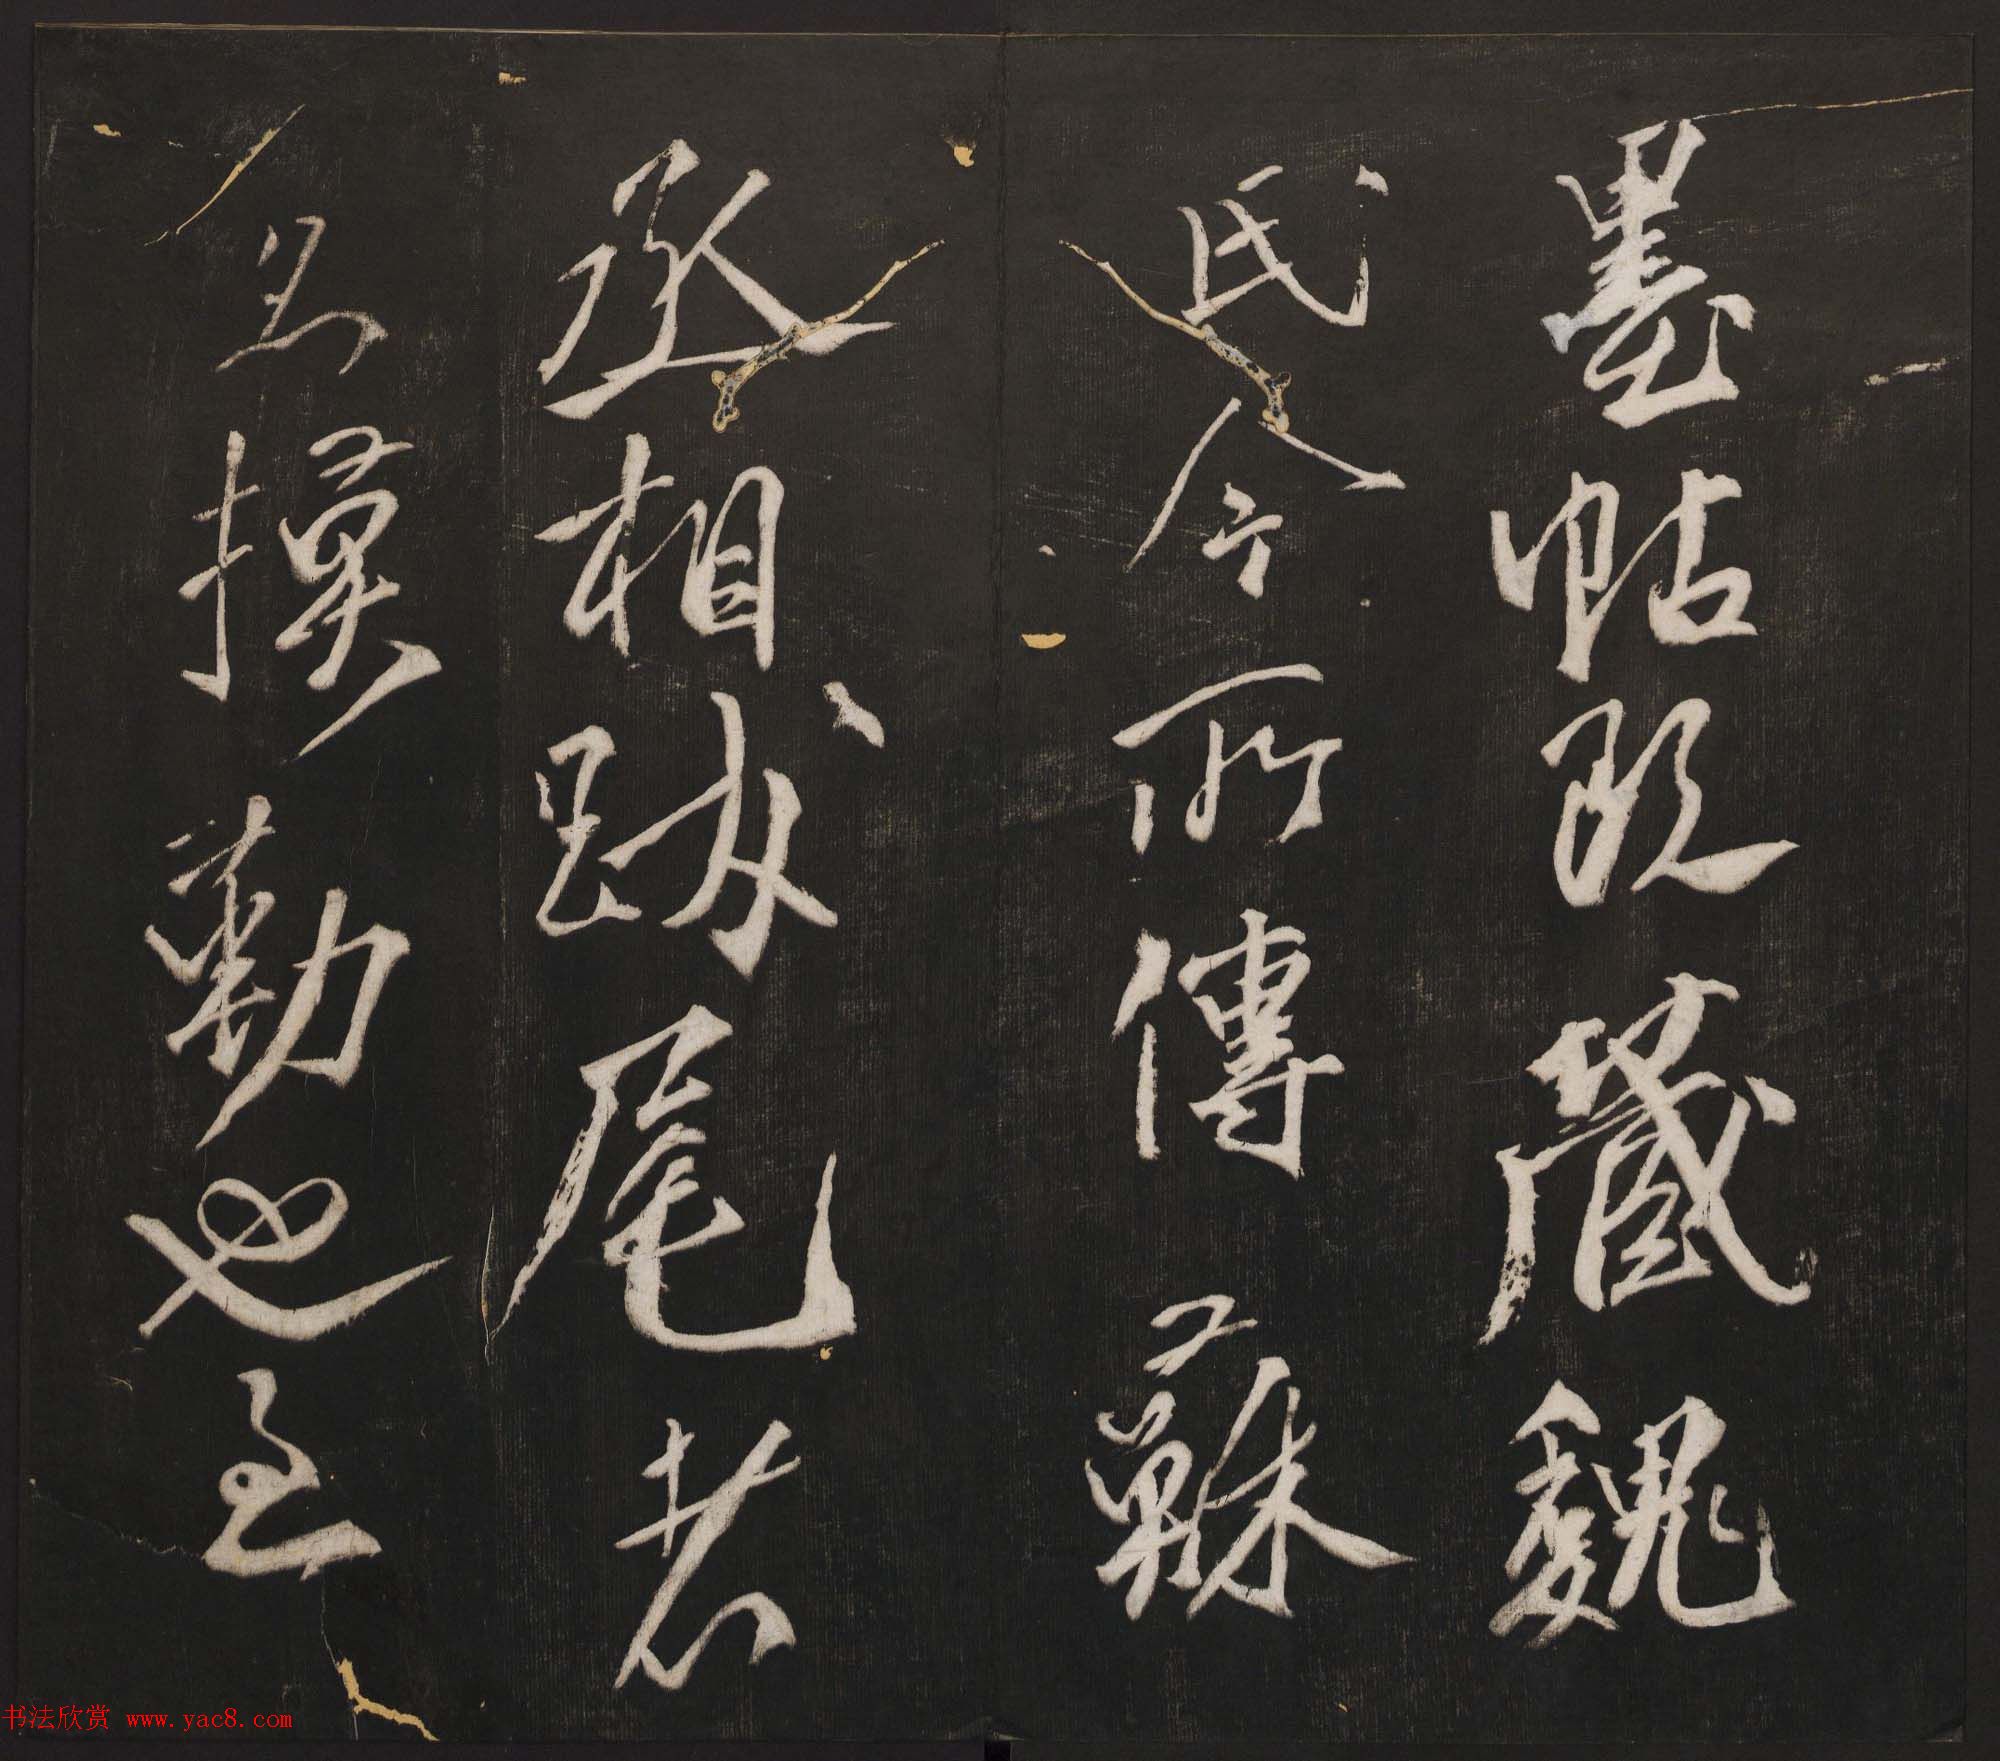 墨帖既藏魏
氏今所傳蘇
丞相跋尾者
乃摸勒也至
书法欣赏 www.yac8.com